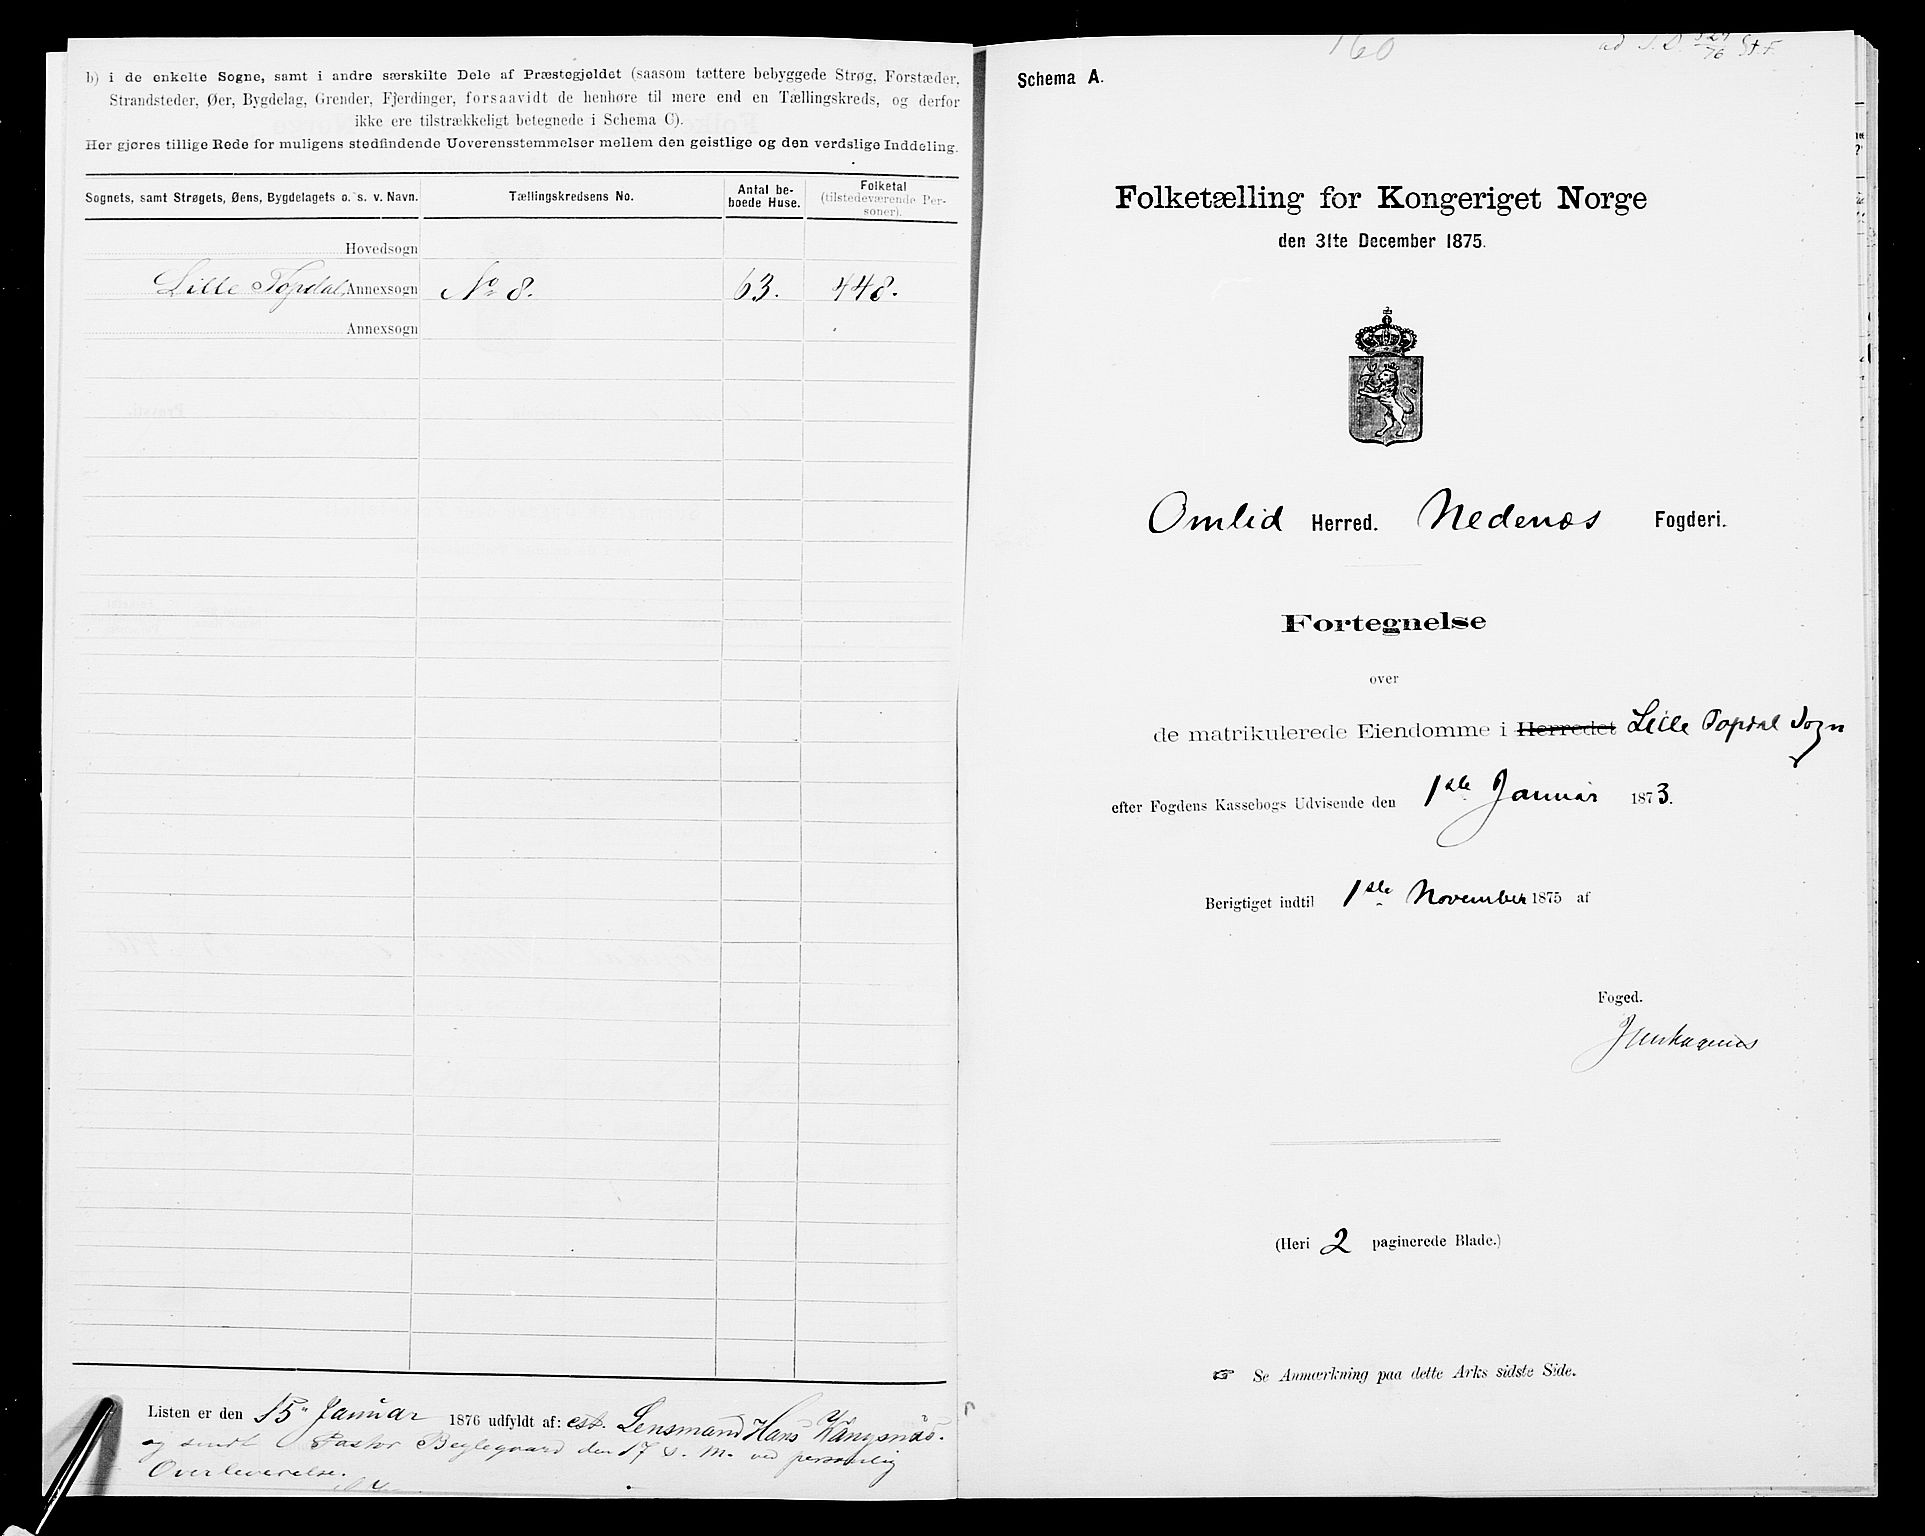 b) i de enkelte Sogne, samt i andre særskilte Dele af Præstegjeldet (saasom tættere bebyggede Strøg, Forstæder,
Strandsteder, Øer, Bygdelag, Grender, Fjerdinger, forsaavidt de henhøre til mere end en Tællingskreds, og derfor
ikke ere tilstrækkeligt betegnede i Schema C).
Her gjøres tillige Rede for muligens stedfindende Uoverensstemmelser mellem den geistlige og den verdslige Inddeling.
Sognets, samt Strøgets, Øens, Bygdelagets o. s. v. Navn.
Tællingskredsens No.
Antal be-
boede Huse.
Folketal
(tilstedeværende Per-
soner).
Hovedsogn
Lille Topdal Annexsogn No 8. 63. 448.
Annexsogn
Listen er den 15 Januar 1876 udfyldt af: cst. Lensmand Hans
og sendt Pastor den 17 d. M. ved personlig
Overleverelse.
160
Schema A.
Folketælling for Kongeriget Norge
den 31te December 1875.
Omlid Herred. Nedenæs Fogderi.
Fortegnelse
over
de matrikulerede Eiendomme i Herredet Lille Topdal Sogn
efter Fogdens Kassebogs Udvisende den 1ste Januar 1873.
Berigtiget indtil 1ste November 1875 af
Foged.
(Heri 2 paginerede Blade.)
☞ Se Anmærkning paa dette Arks sidste Side.